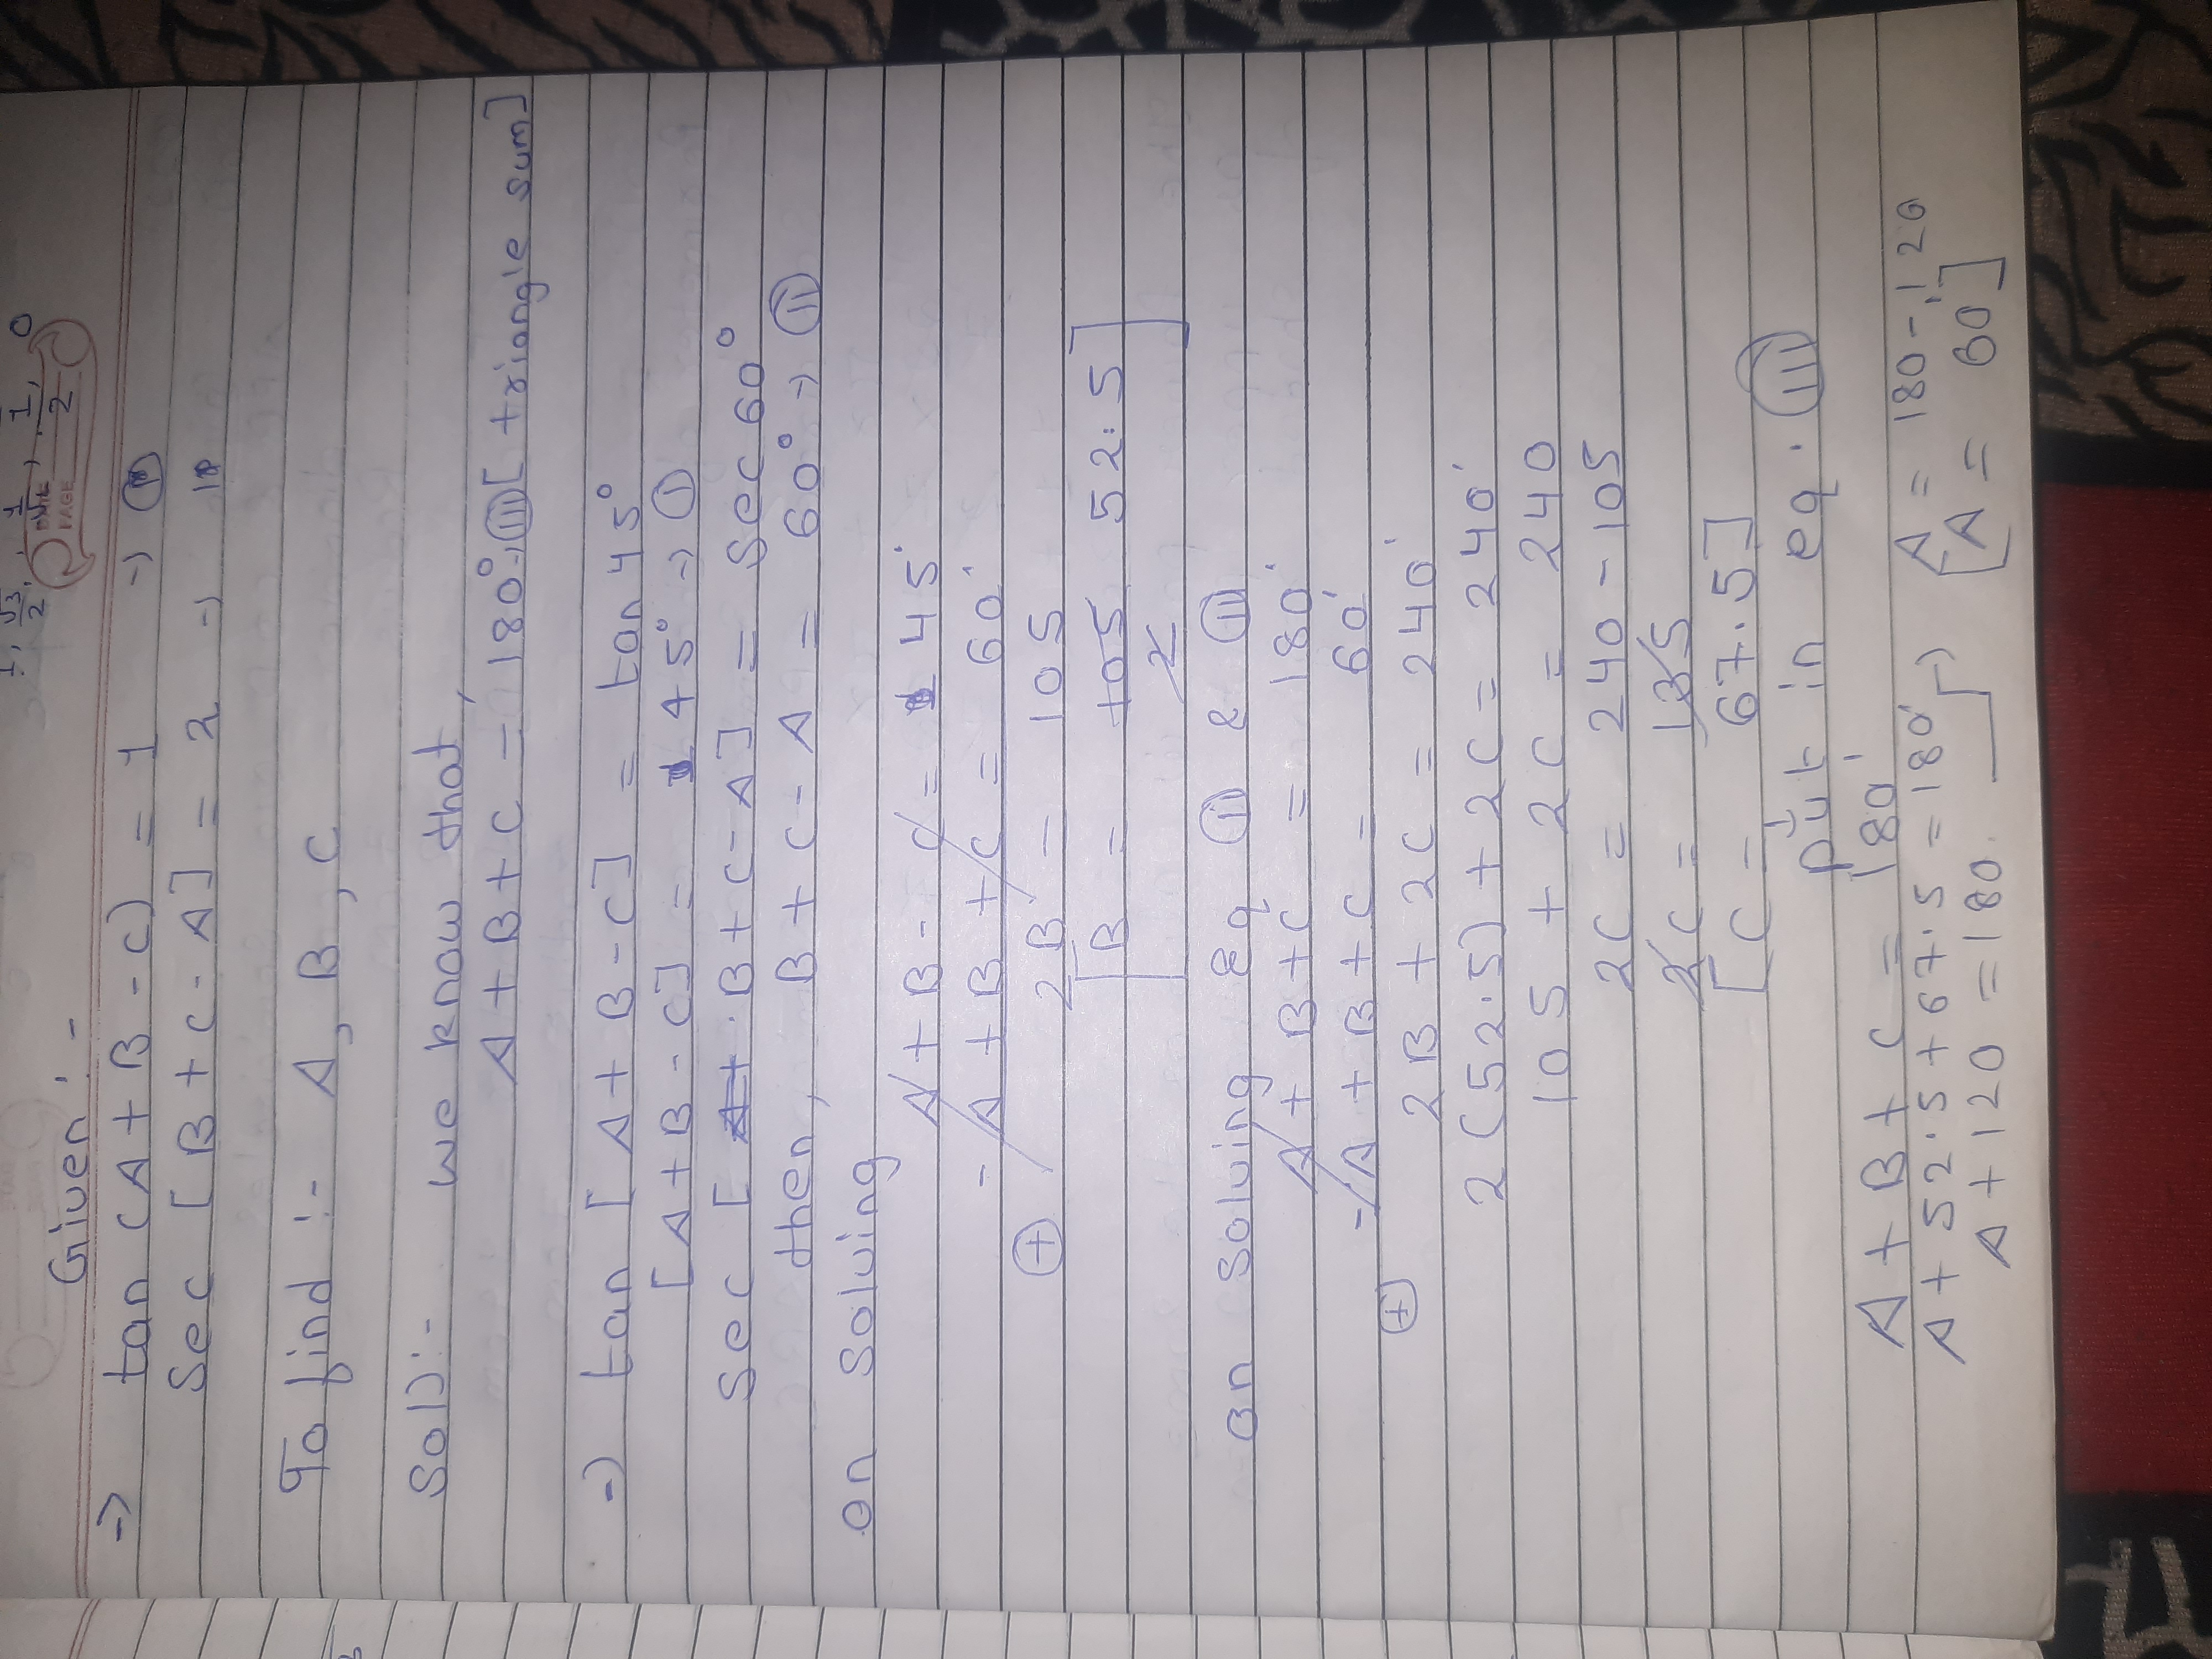 1, √3/2, 1/√2, 1/2, 0
DATE
PAGE
Given :-
→ tan (A + B - C) = 1 → ①
Sec [B + C - A] = 2 → 11
To find :- A, B, C
Sol):- we know that,
A + B + C = 180° → ⑪ [triangle sum]
→) tan [A + B - C] = tan 45°
[A + B - C] = 45° → ①
Sec [B + C - A] = Sec 60°
then, B + C - A = 60° → ⑪
on Solving
A + B - C = 45°
- A + B + C = 60°
⊕ 2B = 105
[B = 105/2 52.5]
on Solving Eq ⑪ & ⑪
A + B + C = 180°
- A + B + C = 60°
⊕ 2B + 2C = 240°
2(52.5) + 2C = 240°
105 + 2C = 240
2C = 240 - 105
2C = 135
[C = 67.5]
put in eq. Ⅲ
A + B + C = 180°
A + 52.5 + 67.5 = 180°
A + 120 = 180.
A = 180 - 120
[A = 60]